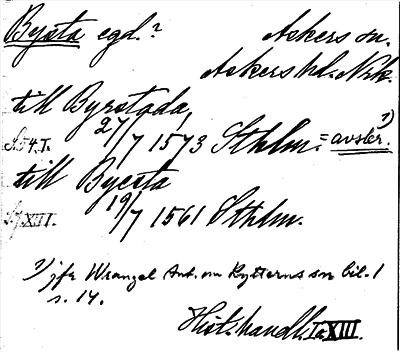 Bysta egd.? Askers sn.
Askers hd. Nrk.
till Byrstada,
S. 54. I. 27/7 1573 Sthlm. = avskr. 1)
till Byesta
XIII. 19/7 1561 Sthlm.
1) jfr Wrangel Ant. om Rytterns sn bil. 1
s. 14.
Hist. handl. XIII.